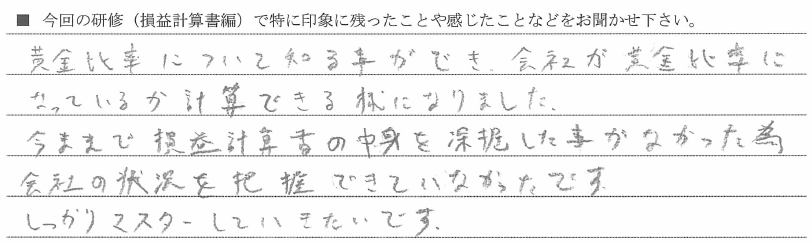 ■ 今回の研修（損益計算書編）で特に印象に残ったことや感じたことなどをお聞かせ下さい。
黄金比率について知る事ができ、会社が黄金比率に
なっているか計算できる様になりました。
今ままで損益計算書の中身を深掘した事がなかった為
会社の状況を把握できていなかったです。
しっかりマスターしていきたいです。